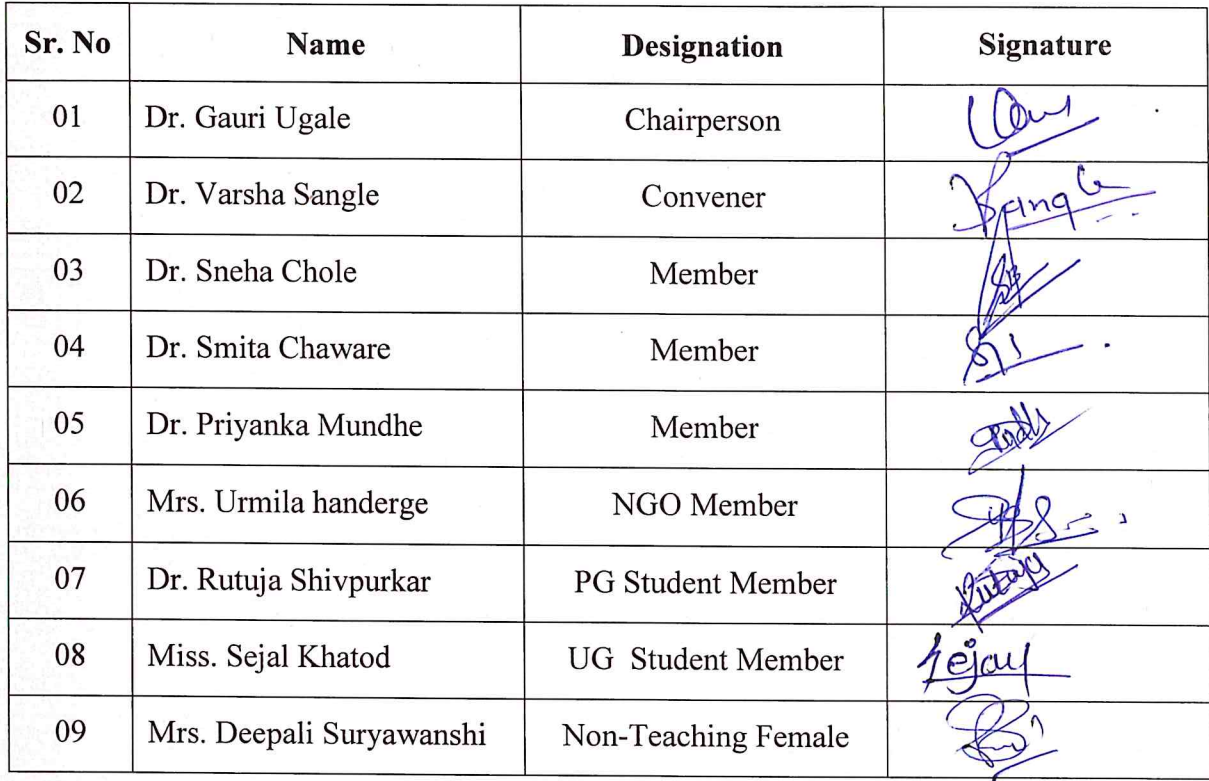 Sr. No Name Designation Signature
01 Dr. Gauri Ugale Chairperson
02 Dr. Varsha Sangle Convener Sangle
03 Dr. Sneha Chole Member
04 Dr. Smita Chaware Member
05 Dr. Priyanka Mundhe Member
06 Mrs. Urmila handerge NGO Member
07 Dr. Rutuja Shivpurkar PG Student Member Rutuja
08 Miss. Sejal Khatod UG Student Member Sejal
09 Mrs. Deepali Suryawanshi Non-Teaching Female